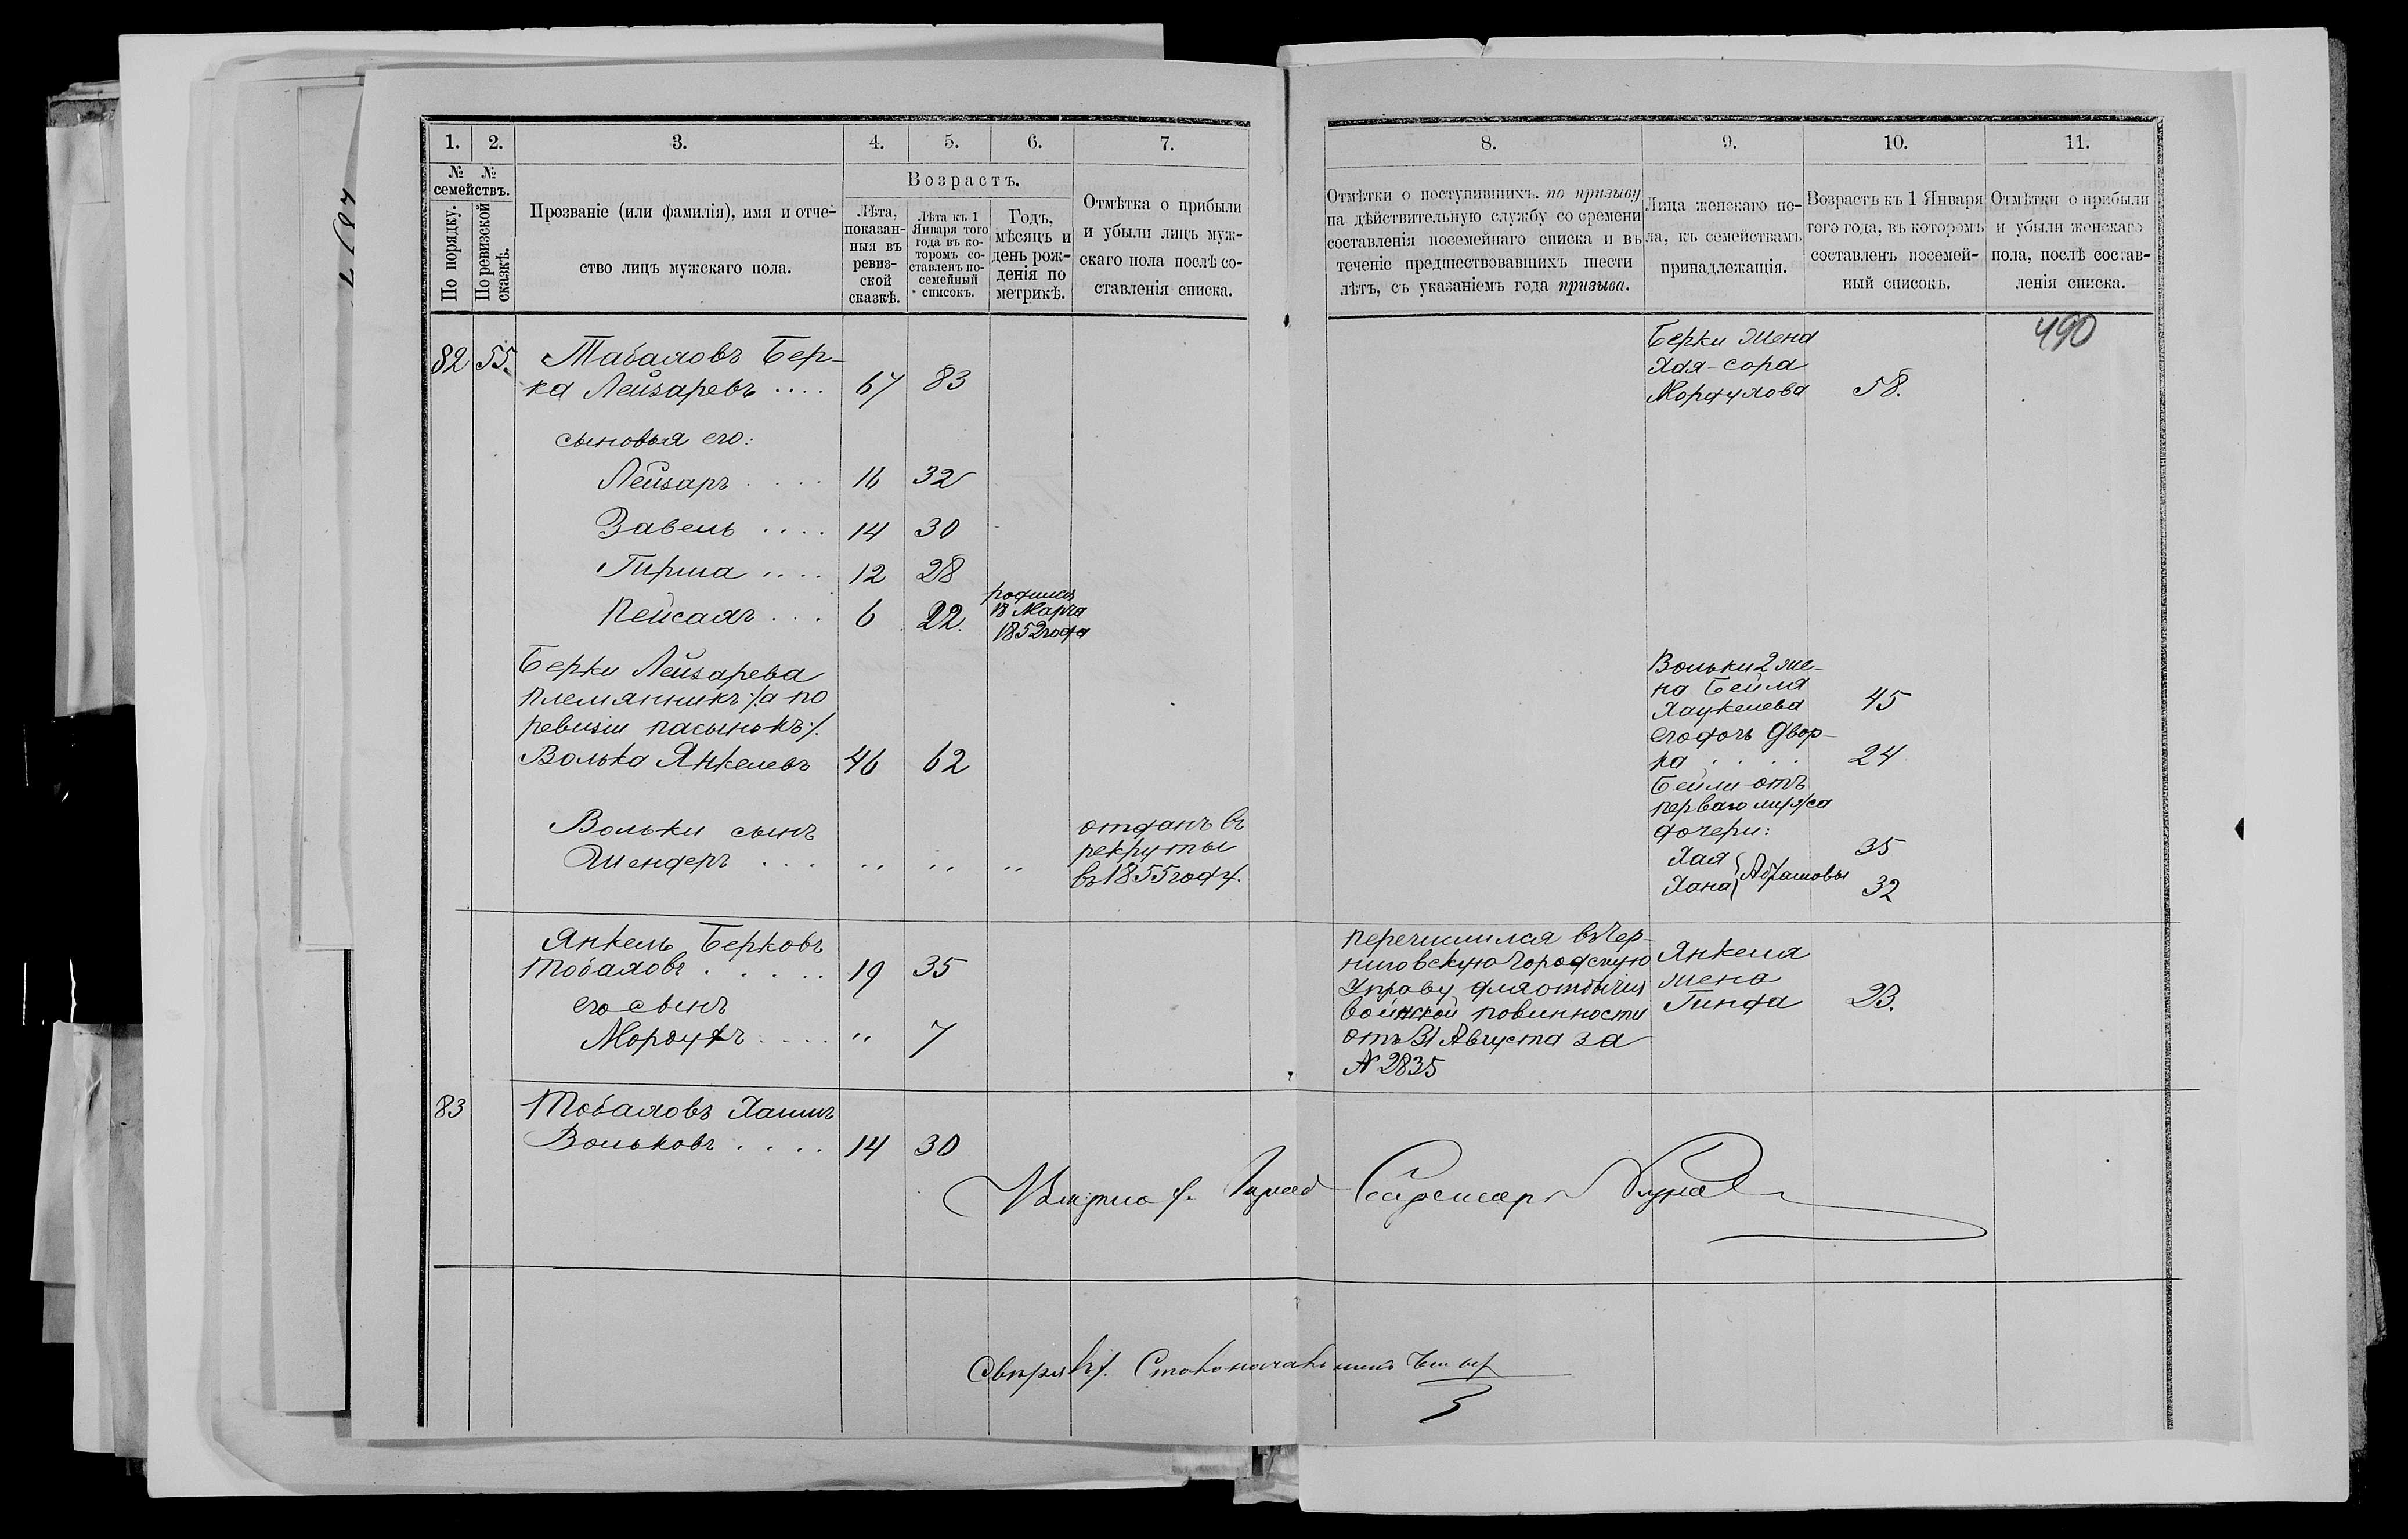 1. 2. 3. 4. 5. 6. 7.
№ №
семействъ.
По порядку.
По ревизской сказкѣ.
Прозваніе (или фамилія), имя и отче-
ство лицъ мужскаго пола.
Возрастъ.
Лѣта,
показан-
ныя въ
ревиз-
ской
сказкѣ.
Лѣта къ 1
Января того
года въ ко-
торомъ со-
ставленъ по-
семейный
списокъ.
Годъ,
мѣсяцъ и
день рож-
денія по
метрикѣ.
Отмѣтка о прибыли
и убыли лицъ муж-
скаго пола послѣ со-
ставленія списка.
82 55. Табаховъ Бер-
ка Лейзаревъ .... 67 83
сыновья его:
Лейзаръ .... 16 32
Завель .... 14 30
Гирша .... 12 28
Пейсахъ ... 6 22. родился
18 Марта
1852 года
Берки Лейзарева
племянникъ /:а по
ревизіи пасынокъ:/
Волька Янкелевъ 46 62
Вольки сынъ
Шендеръ ... " " "
отданъ въ
рекруты
въ 1855 году.
Янкель Берковъ
Тобаховъ ..... 19 35
его сынъ
Мордухъ .... " 7
83 Тобаховъ Хаимъ
Вольковъ .... 14 30
8. 9. 10. 11.
Отмѣтки о поступившихъ по призыву
на дѣйствительную службу со времени
составленія посемейнаго списка и въ
теченіе предшествовавшихъ шести
лѣтъ, съ указаніемъ года призыва.
Лица женскаго по-
ла, къ семействамъ
принадлежащія.
Возрастъ къ 1 Января
того года, въ которомъ
составленъ посемей-
ный списокъ.
Отмѣтки о прибыли
и убыли женскаго
пола, послѣ состав-
ленія списка.
490
Берки жена
Хая-сора
Мордухова 58.
Вольки 2 же-
на Бейля
Хацкелева 45
его дочь Двор-
ка .... 24
Бейли отъ
перваго мужа
дочери:
Хая 35
Хана } Абрамовы 32
перечислился въ Чер-
ниговскую городскую
Управу для отбытія
воинской повинности
отъ 31 Августа за
№ 2835
Янкеля
жена
Гинда 23.
Секретарь
Свѣрялъ Столоначальникъ